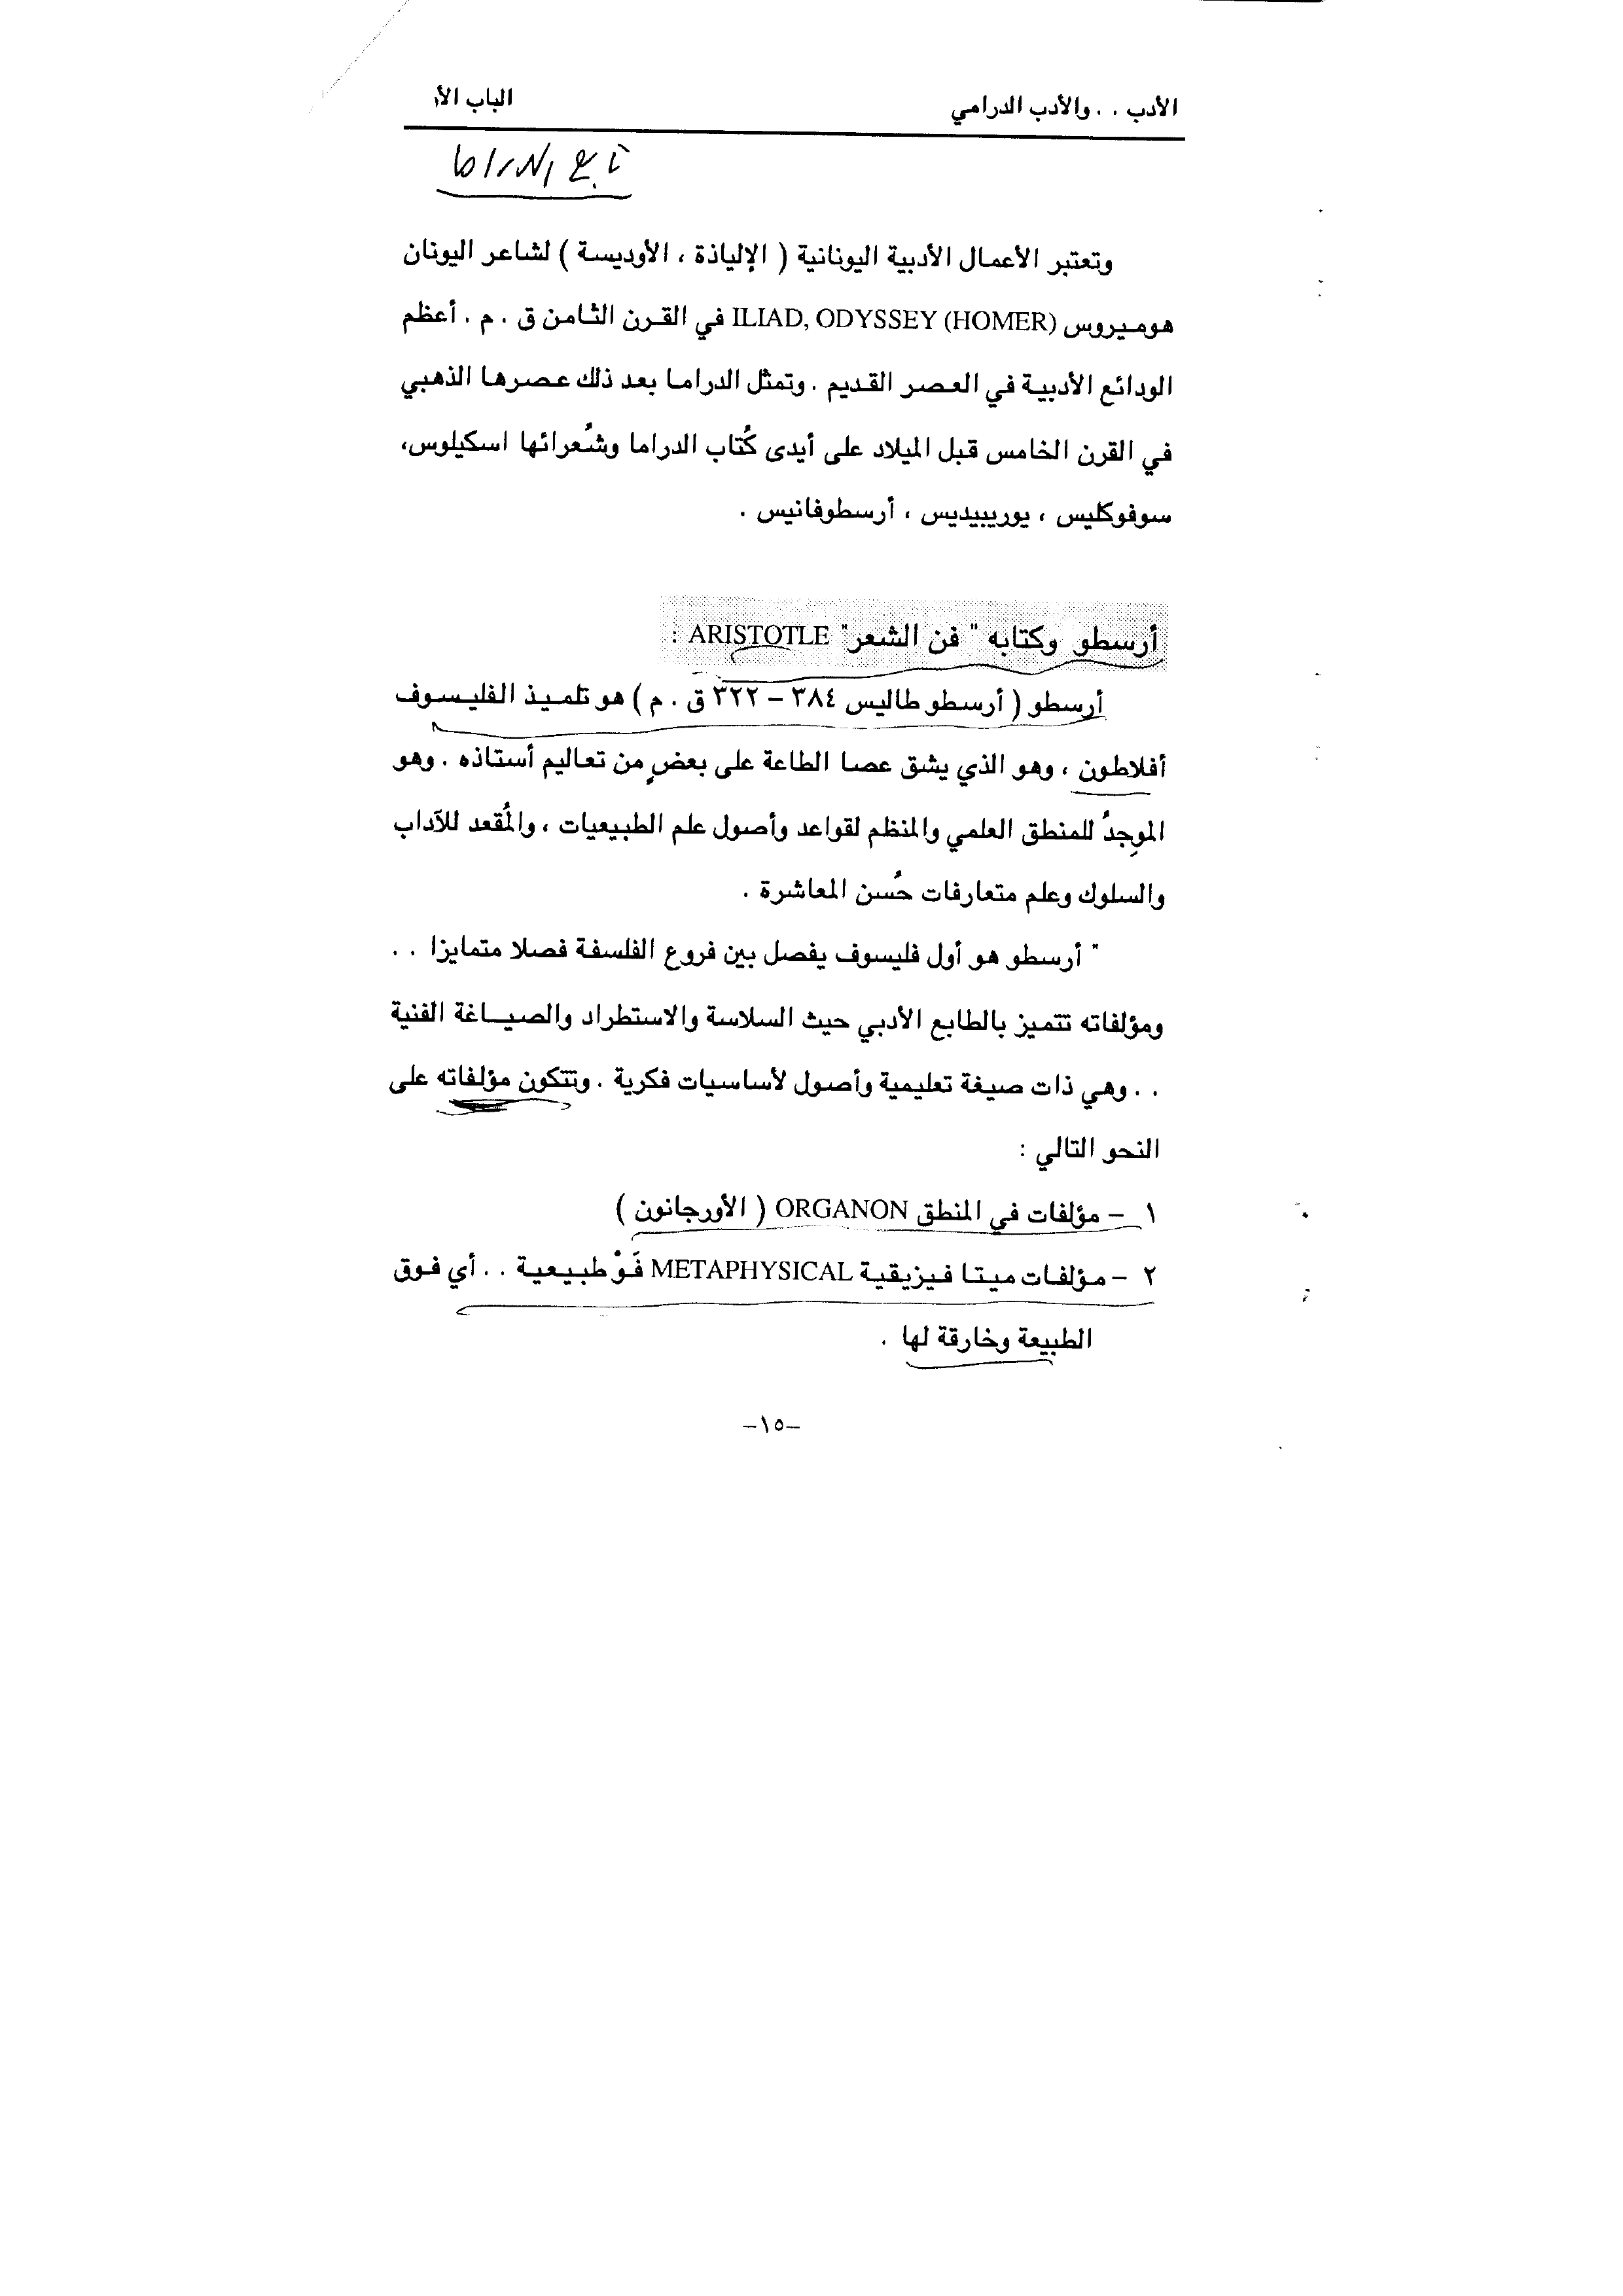 الأدب . . والأدب الدرامي الباب الأ
تابع الدراما
وتعتبر الأعمال الأدبية اليونانية ( الإلياذة ، الأوديسة ) لشاعر اليونان
هوميروس ILIAD, ODYSSEY (HOMER) في القرن الثامن ق . م . أعظم
الودائع الأدبية في العصر القديم . وتمثل الدراما بعد ذلك عصرها الذهبي
في القرن الخامس قبل الميلاد على أيدى كُتاب الدراما وشُعرائها اسكيلوس،
سوفوكليس ، يوريبيديس ، أرسطوفانيس .
أرسطو وكتابه " فن الشعر" ARISTOTLE :
أرسطو ( أرسطو طاليس ٣٨٤ – ٣٢٢ ق . م ) هو تلميذ الفليسوف
أفلاطون ، وهو الذي يشق عصا الطاعة على بعضٍ من تعاليم أستاذه . وهو
الموجِدُ للمنطق العلمي والمنظم لقواعد وأصول علم الطبيعيات ، والمُقعد للآداب
والسلوك وعلم متعارفات حُسن المعاشرة .
" أرسطو هو أول فليسوف يفصل بين فروع الفلسفة فصلا متمايزا . .
ومؤلفاته تتميز بالطابع الأدبي حيث السلاسة والاستطراد والصياغة الفنية
. . وهي ذات صيغة تعليمية وأصول لأساسيات فكرية . وتتكون مؤلفاته على
النحو التالي :
١ – مؤلفات في المنطق ORGANON ( الأورجانون )
٢ – مؤلفات ميتا فيزيقية METAPHYSICAL فَوْ طبيعية . . أي فوق
الطبيعة وخارقة لها .
–١٥–